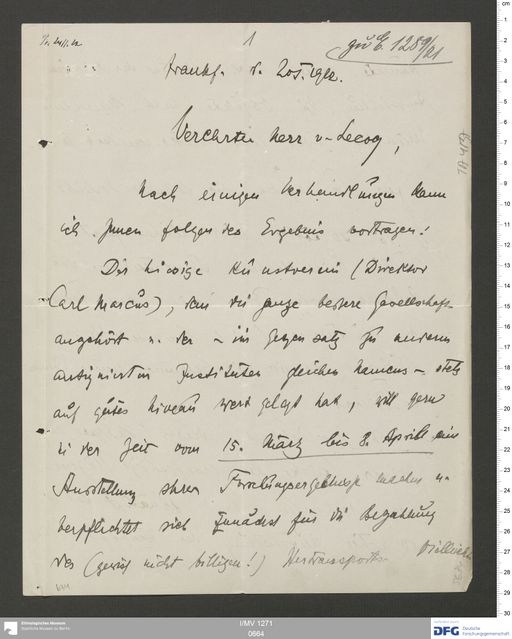 1
zu E. 1289/21
Frankf. d. 20.I.1922.
Verehrter Herr v. Lecoq,
Nach einigen Verhandlungen kann
ich Ihnen folgendes Ergebnis vortragen:
Der hiesige Kunstverein (Direktor
Carl Marcus), dem die ganze bessere Gesellschaft
angehört u. der – im Gegensatz zu anderen
Instituten gleichen Namens – stets
auf gutes Niveau Wert gelegt hat, will gern
in der Zeit vom 15. März bis 8. April eine
Ausstellung Ihrer Forschungsergebnisse machen u.
verpflichtet sich zunächst für die Bezahlung
des (gewiß nicht billigen!) Hertransports. Vielleicht
TA 4137
Ethnologisches Museum
Staatliche Museen zu Berlin
I/MV 1271
0664
gefördert durch
DFG Deutsche
Forschungsgemeinschaft
cm
0
1
2
3
4
5
6
7
8
9
10
11
12
13
14
15
16
17
18
19
20
21
22
23
24
25
26
27
28
29
30